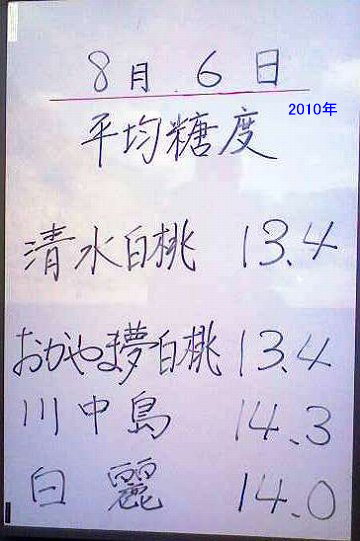 8月6日
2010年
平均糖度
清水白桃 13.4
おかやま夢白桃 13.4
川中島 14.3
白麗 14.0